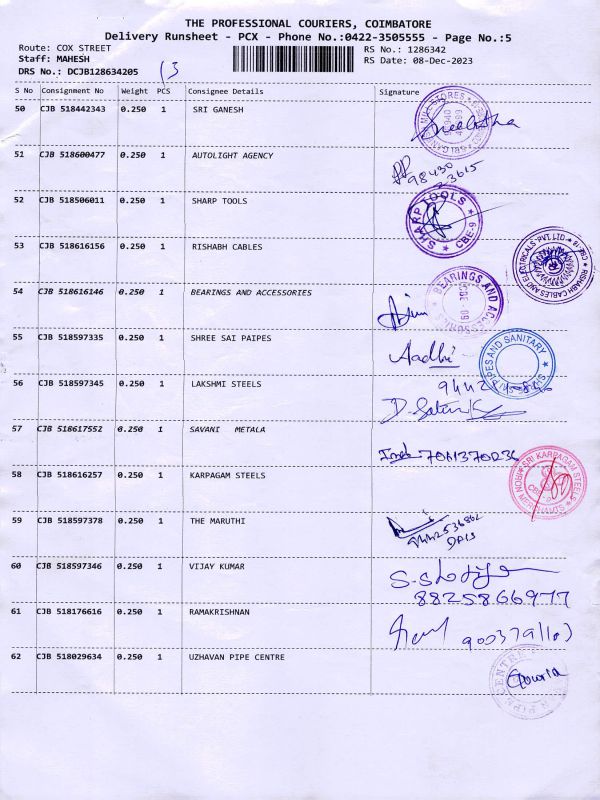 THE PROFESSIONAL COURIERS, COIMBATORE
Delivery Runsheet - PCX - Phone No.:0422-3505555 - Page No.:5
Route: COX STREET
RS No.: 1286342
Staff: MAHESH
RS Date: 08-Dec-2023
DRS No.: DCJB128634205
13
S No Consignment No Weight PCS Consignee Details Signature
50 CJB 518442343 0.250 1 SRI GANESH
51 CJB 518600477 0.250 1 AUTOLIGHT AGENCY
98430
23615
52 CJB 518506011 0.250 1 SHARP TOOLS
SHARP TOOLS CBE-9
53 CJB 518616156 0.250 1 RISHABH CABLES
RISHABH CABLES AND ELECTRICALS PVT. LTD CBE-18
54 CJB 518616146 0.250 1 BEARINGS AND ACCESSORIES
BEARINGS AND ACCESSORIES
55 CJB 518597335 0.250 1 SHREE SAI PAIPES
Aadhi
PIPES AND SANITARY
56 CJB 518597345 0.250 1 LAKSHMI STEELS
57 CJB 518617552 0.250 1 SAVANI METALA
7061370236
58 CJB 518616257 0.250 1 KARPAGAM STEELS
SRI KARPAGAM STEELS IRON MERCHANTS
59 CJB 518597378 0.250 1 THE MARUTHI
60 CJB 518597346 0.250 1 VIJAY KUMAR
8825866977
61 CJB 518176616 0.250 1 RAMAKRISHNAN
62 CJB 518029634 0.250 1 UZHAVAN PIPE CENTRE
Gowria